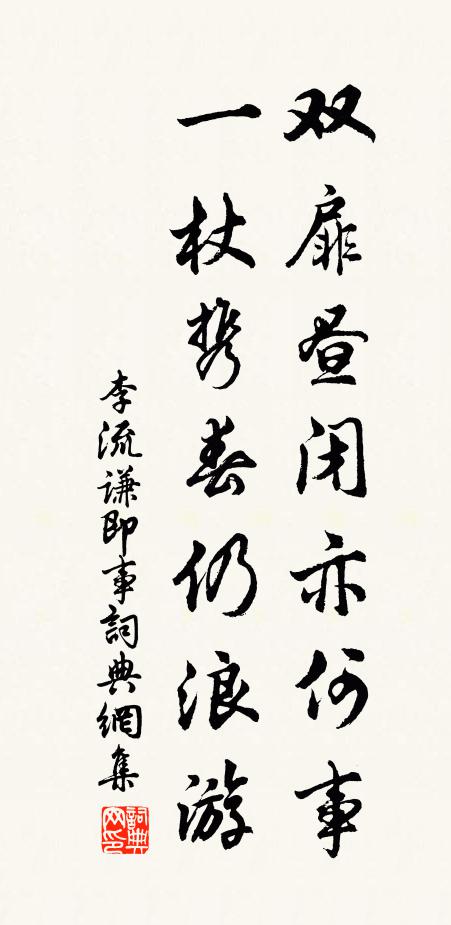 双扉昼闭亦何事
一杖携春仍浪游
李流谦即事詞典網集
詞典
网印